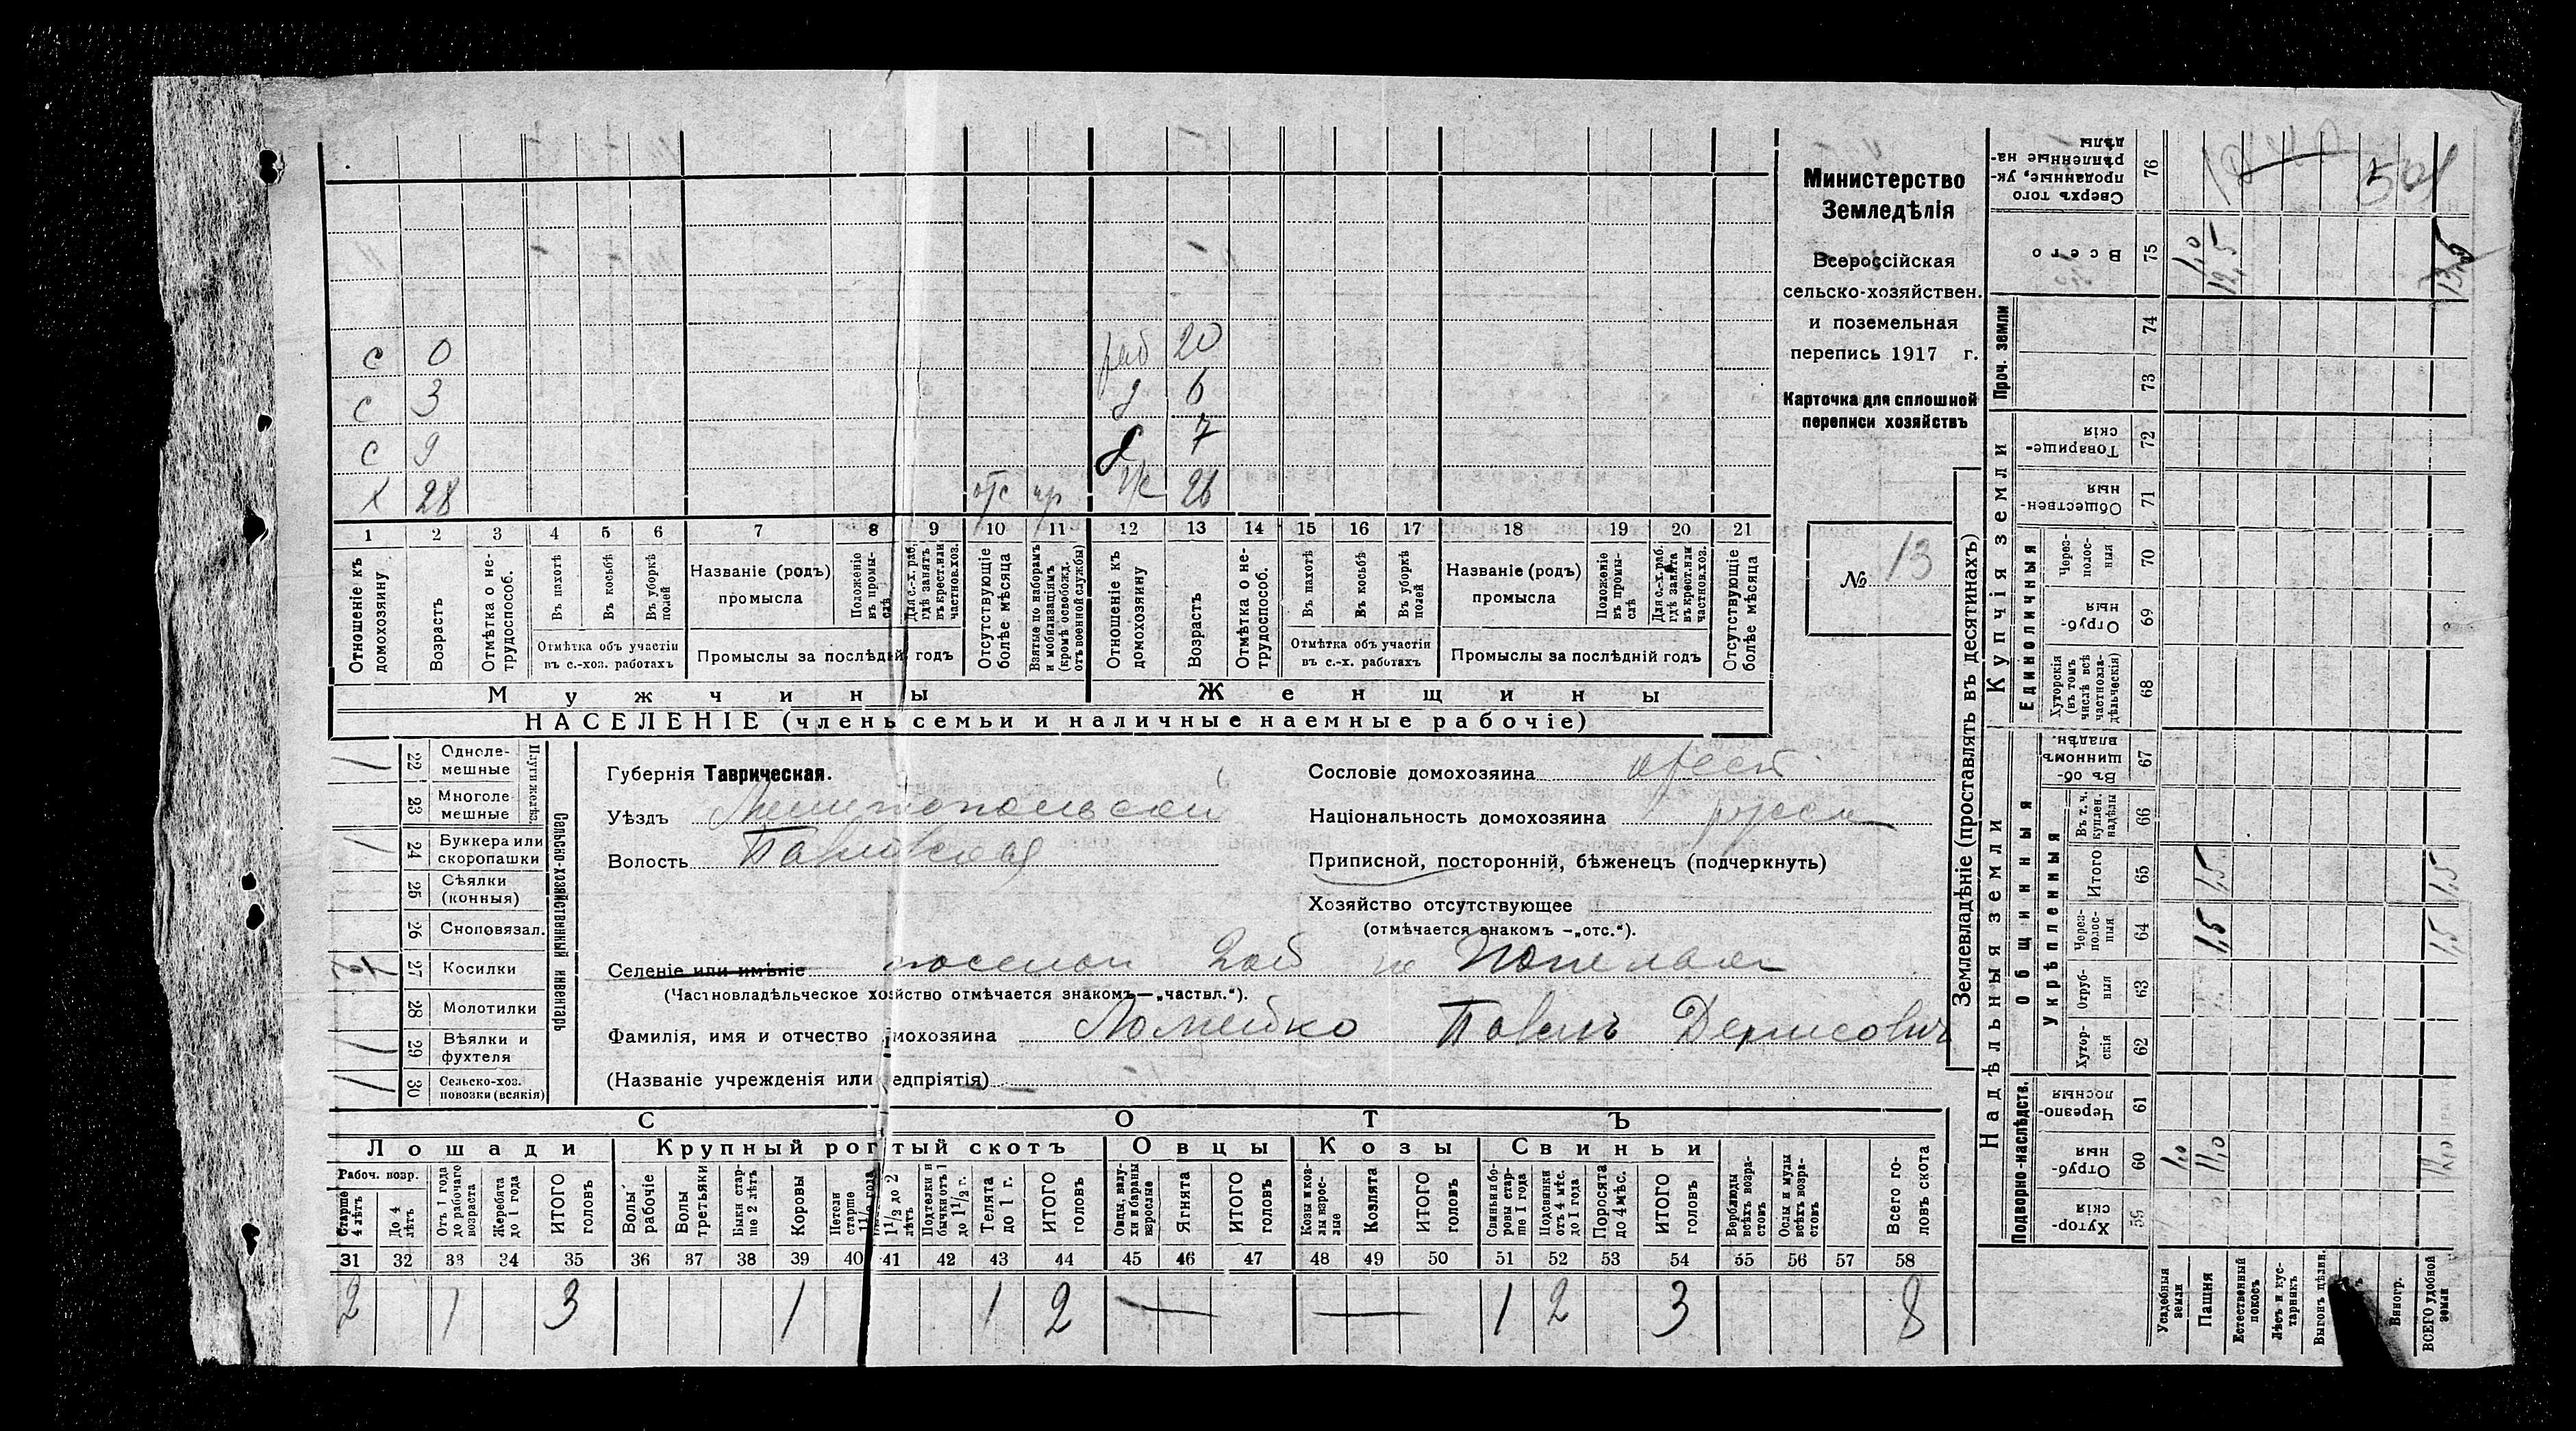 Министерство
Земледѣлія
Всероссійская
сельско-хозяйствен.
и поземельная
перепись 1917 г.
Карточка для сплошной
переписи хозяйствъ
№ 13
с 0 раб 20
с 3 д 6
с 9 д 7
х 28 отс пр ж 26
1 2 3 4 5 6 7 8 9 10 11 12 13 14 15 16 17 18 19 20 21
Отношеніе къ домохозяину
Возрастъ
Отмѣтка о не-трудоспособ.
Въ пахотѣ
Въ косьбѣ
Въ уборкѣ полей
Отмѣтка объ участіи въ с.-хоз. работахъ
Названіе (родъ) промысла
Положеніе въ промы-слѣ
Для с.-х. раб. гдѣ занятъ въ крест. или частнов. хоз.
Промыслы за послѣдній годъ
Отсутствующіе болѣе мѣсяца
Взятые по наборамъ и мобилизаціямъ (кромѣ освобожд. отъ военной службы)
Отношеніе къ домохозяину
Возрастъ
Отмѣтка о не-трудоспособ.
Въ пахотѣ
Въ косьбѣ
Въ уборкѣ полей
Отмѣтка объ участіи въ с.-х. работахъ
Названіе (родъ) промысла
Положеніе въ промы-слѣ
Для с.-х. раб. гдѣ занята въ крест. или частнов. хоз.
Промыслы за послѣдній годъ
Отсутствующіе болѣе мѣсяца
Мужчины Женщины
НАСЕЛЕНІЕ (члены семьи и наличные наемные рабочіе)
Сельско-хозяйственный инвентарь
1 22 Одноле-мешные
23 Многоле-мешные
1 24 Буккера или скоропашки
25 Сѣялки (конныя)
26 Сноповязал.
27 Косилки
28 Молотилки
1 29 Вѣялки и фухтеля
1 30 Сельско-хоз. повозки (всякія)
Губернія Таврическая.
Уѣздъ Мелитопольскій
Волость
Сословіе домохозяина крест
Національность домохозяина русск
Приписной, посторонній, бѣженецъ (подчеркнуть)
Хозяйство отсутствующее
(отмѣчается знакомъ —„отс.“).
Селеніе или имѣніе поселок
(Частновладѣльческое хозяйство отмѣчается знакомъ—„частвл.“).
Фамилія, имя и отчество домохозяина Ломейко Павелъ Денисовичъ
(Названіе учрежденія или предпріятія)
СКОТЪ
Лошади Крупный рогатый скотъ Овцы Козы Свиньи
Рабоч. возр.
Старше 4 лѣтъ
До 4 лѣтъ
Отъ 1 года до рабочаго возраста
Жеребята до 1 года
ИТОГО головъ
Волы рабочіе
Волы третьяки
Быки стар-ше 2 лѣтъ
Коровы
Нетели старше 1½ года
1½ до 2 лѣтъ
Подтелки и бычки отъ 1 до 1½ г.
Телята до 1 г.
ИТОГО головъ
Овцы, валу-хи и бараны взрослые
Ягнята
ИТОГО головъ
Козы и коз-лы взрос-лые
Козлята
ИТОГО головъ
Свиньи и бо-ровы стар-ше 1 года
Подсвинки отъ 4 мѣс. до 1 года
Поросята до 4 мѣс.
ИТОГО головъ
Верблюды всѣхъ возра-стовъ
Ослы и мулы всѣхъ возра-стовъ
Всего го-ловъ скота
31 32 33 34 35 36 37 38 39 40 41 42 43 44 45 46 47 48 49 50 51 52 53 54 55 56 57 58
2 1 3 1 1 2 — — 1 2 3 8
Землевладѣніе (проставлять въ десятинахъ)
Надѣльныя земли Купчія земли Проч. земли
Подворно-наслѣдств. Общинныя Укрѣпленныя Единоличныя
59 Хутор-скія
60 Отруб-ныя 1,0 11,0 12,0
61 Черезпо-лосныя
62 Хутор-скія
63 Отруб-ныя
64 Через-полос-ныя 1,5 1,5
65 Итого 1,5 1,5
66 Въ т. ч. куплен. надѣлы
67 Въ об-щинномъ владѣн.
68 Хуторскія (въ томъ числѣ всѣ частновла-дѣльческія)
69 Отруб-ныя
70 Через-полос-ныя
71 Обществен-ныя
72 Товарище-скія
73
74
75 Всего 1,0 12,5 13,5
76 Сверхъ того проданные, ук-рѣпленные на-дѣлы
Усадебныя земли
Пашня
Естественный покосъ
Лѣсъ и кус-тарникъ
Выгонъ цѣлин.
Виногр.
ВСЕГО удобной земли